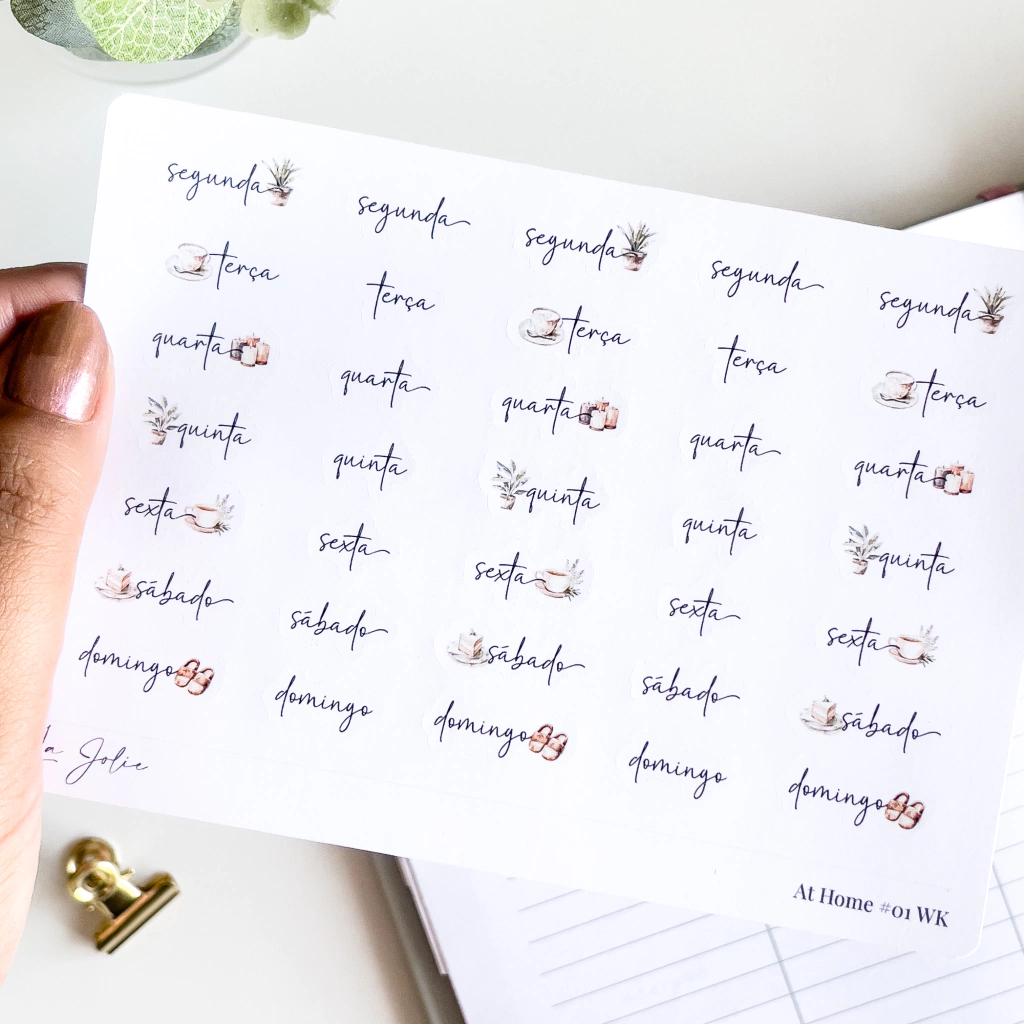 segunda segunda segunda segunda segunda
terça terça terça terça terça
quarta quarta quarta quarta quarta
quinta quinta quinta quinta quinta
sexta sexta sexta sexta sexta
sábado sábado sábado sábado sábado
domingo domingo domingo domingo domingo
Jolie
At Home #01 WK